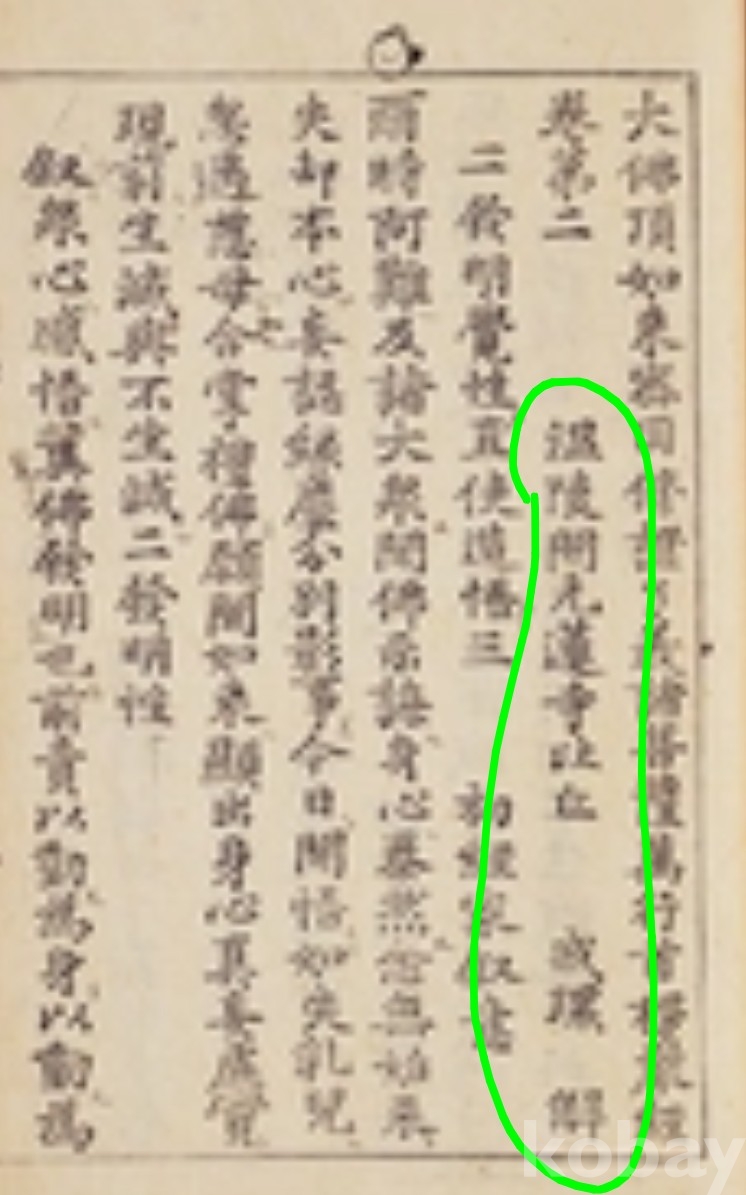 大佛頂如來密因修證了義諸菩薩萬行首楞嚴經
卷第二 溫陵開元蓮寺比丘 戒環 解
二發明覺性直使造悟三 初經家叙意
爾時阿難及諸大衆聞佛示誨身心泰然念無始來
失却本心妄認緣塵分別影事今日開悟如失乳兒
忽遇慈母合掌禮佛願聞如來顯出身心眞妄虛實
現前生滅與不生滅二發明性
叙衆心感悟冀佛發明也前責以動爲身以動爲
kobay